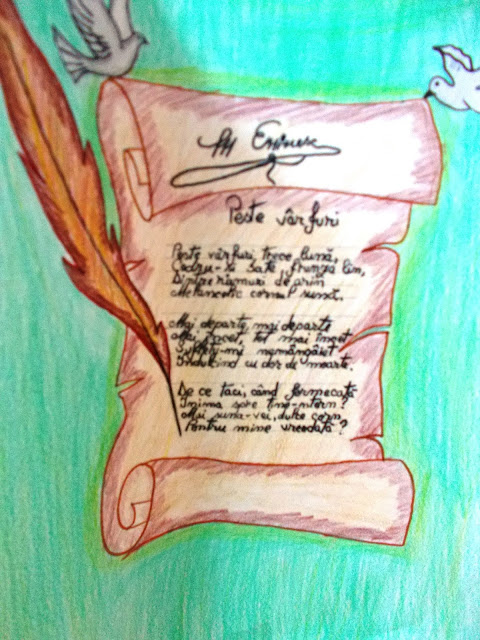 M Eminesc
Peste vârfuri
Peste vârfuri trece lună,
Codru-și bate frunza lin,
Dintre ramuri de arin
Melancolic cornul sună.
Mai departe, mai departe
Mai încet, tot mai încet
Sufletu-mi nemângâiet
Îndulcind cu dor de moarte.
De ce taci, când fermecată
Inima spre tine-ntorn?
Mai suna-vei, dulce corn,
Pentru mine vreodată?